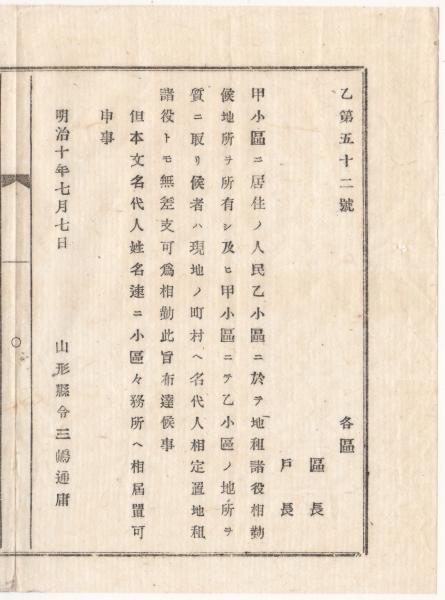 乙第五十二號
各區
區長
戸長
甲小區ニ居住ノ人民乙小區ニ於ヲ地租諸役相勤
候地所ヲ所有シ及ヒ甲小區ニテ乙小區ノ地所ヲ
質ニ取リ候者ハ現地ノ町村ヘ名代人相定置地租
諸役トモ無差支可爲相勤此旨布達候事
但本文名代人姓名速ニ小區々務所ヘ相屆置可
申事
明治十年七月七日
山形縣令三嶋通庸